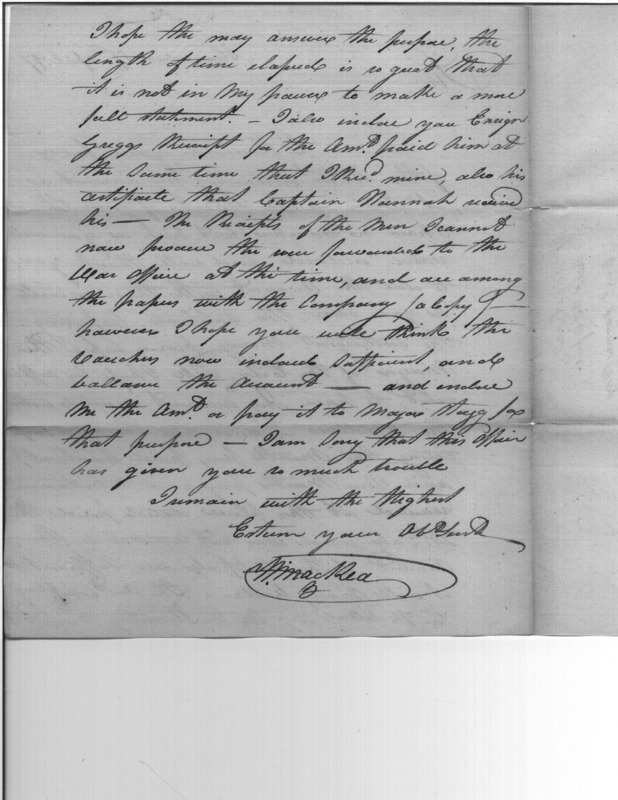 I hope the may answer the purpose, the
length of time elapsed is so great that
it is not in my power to make a more
full statement. - I also inclose you Ensign
Greggs Receipt for the Amt. paid him at
the same time that I Recd. mine, also his
certificate that Captain Hannah received
his — The Receipts of the Men I cannot
now procure the were forwarded to the
War office at the time, and are among
the papers with the Company (a Copy) —
however I hope you will think the
Vouchers now inclosed sufficient, and
ballance the Account — and inclose
me the Amt. or pay it to Major Stagg for
that purpose — I am sorry that this affair
has given you so much trouble
I remain with the Highest
Esteem your Obt Servt
MacRea